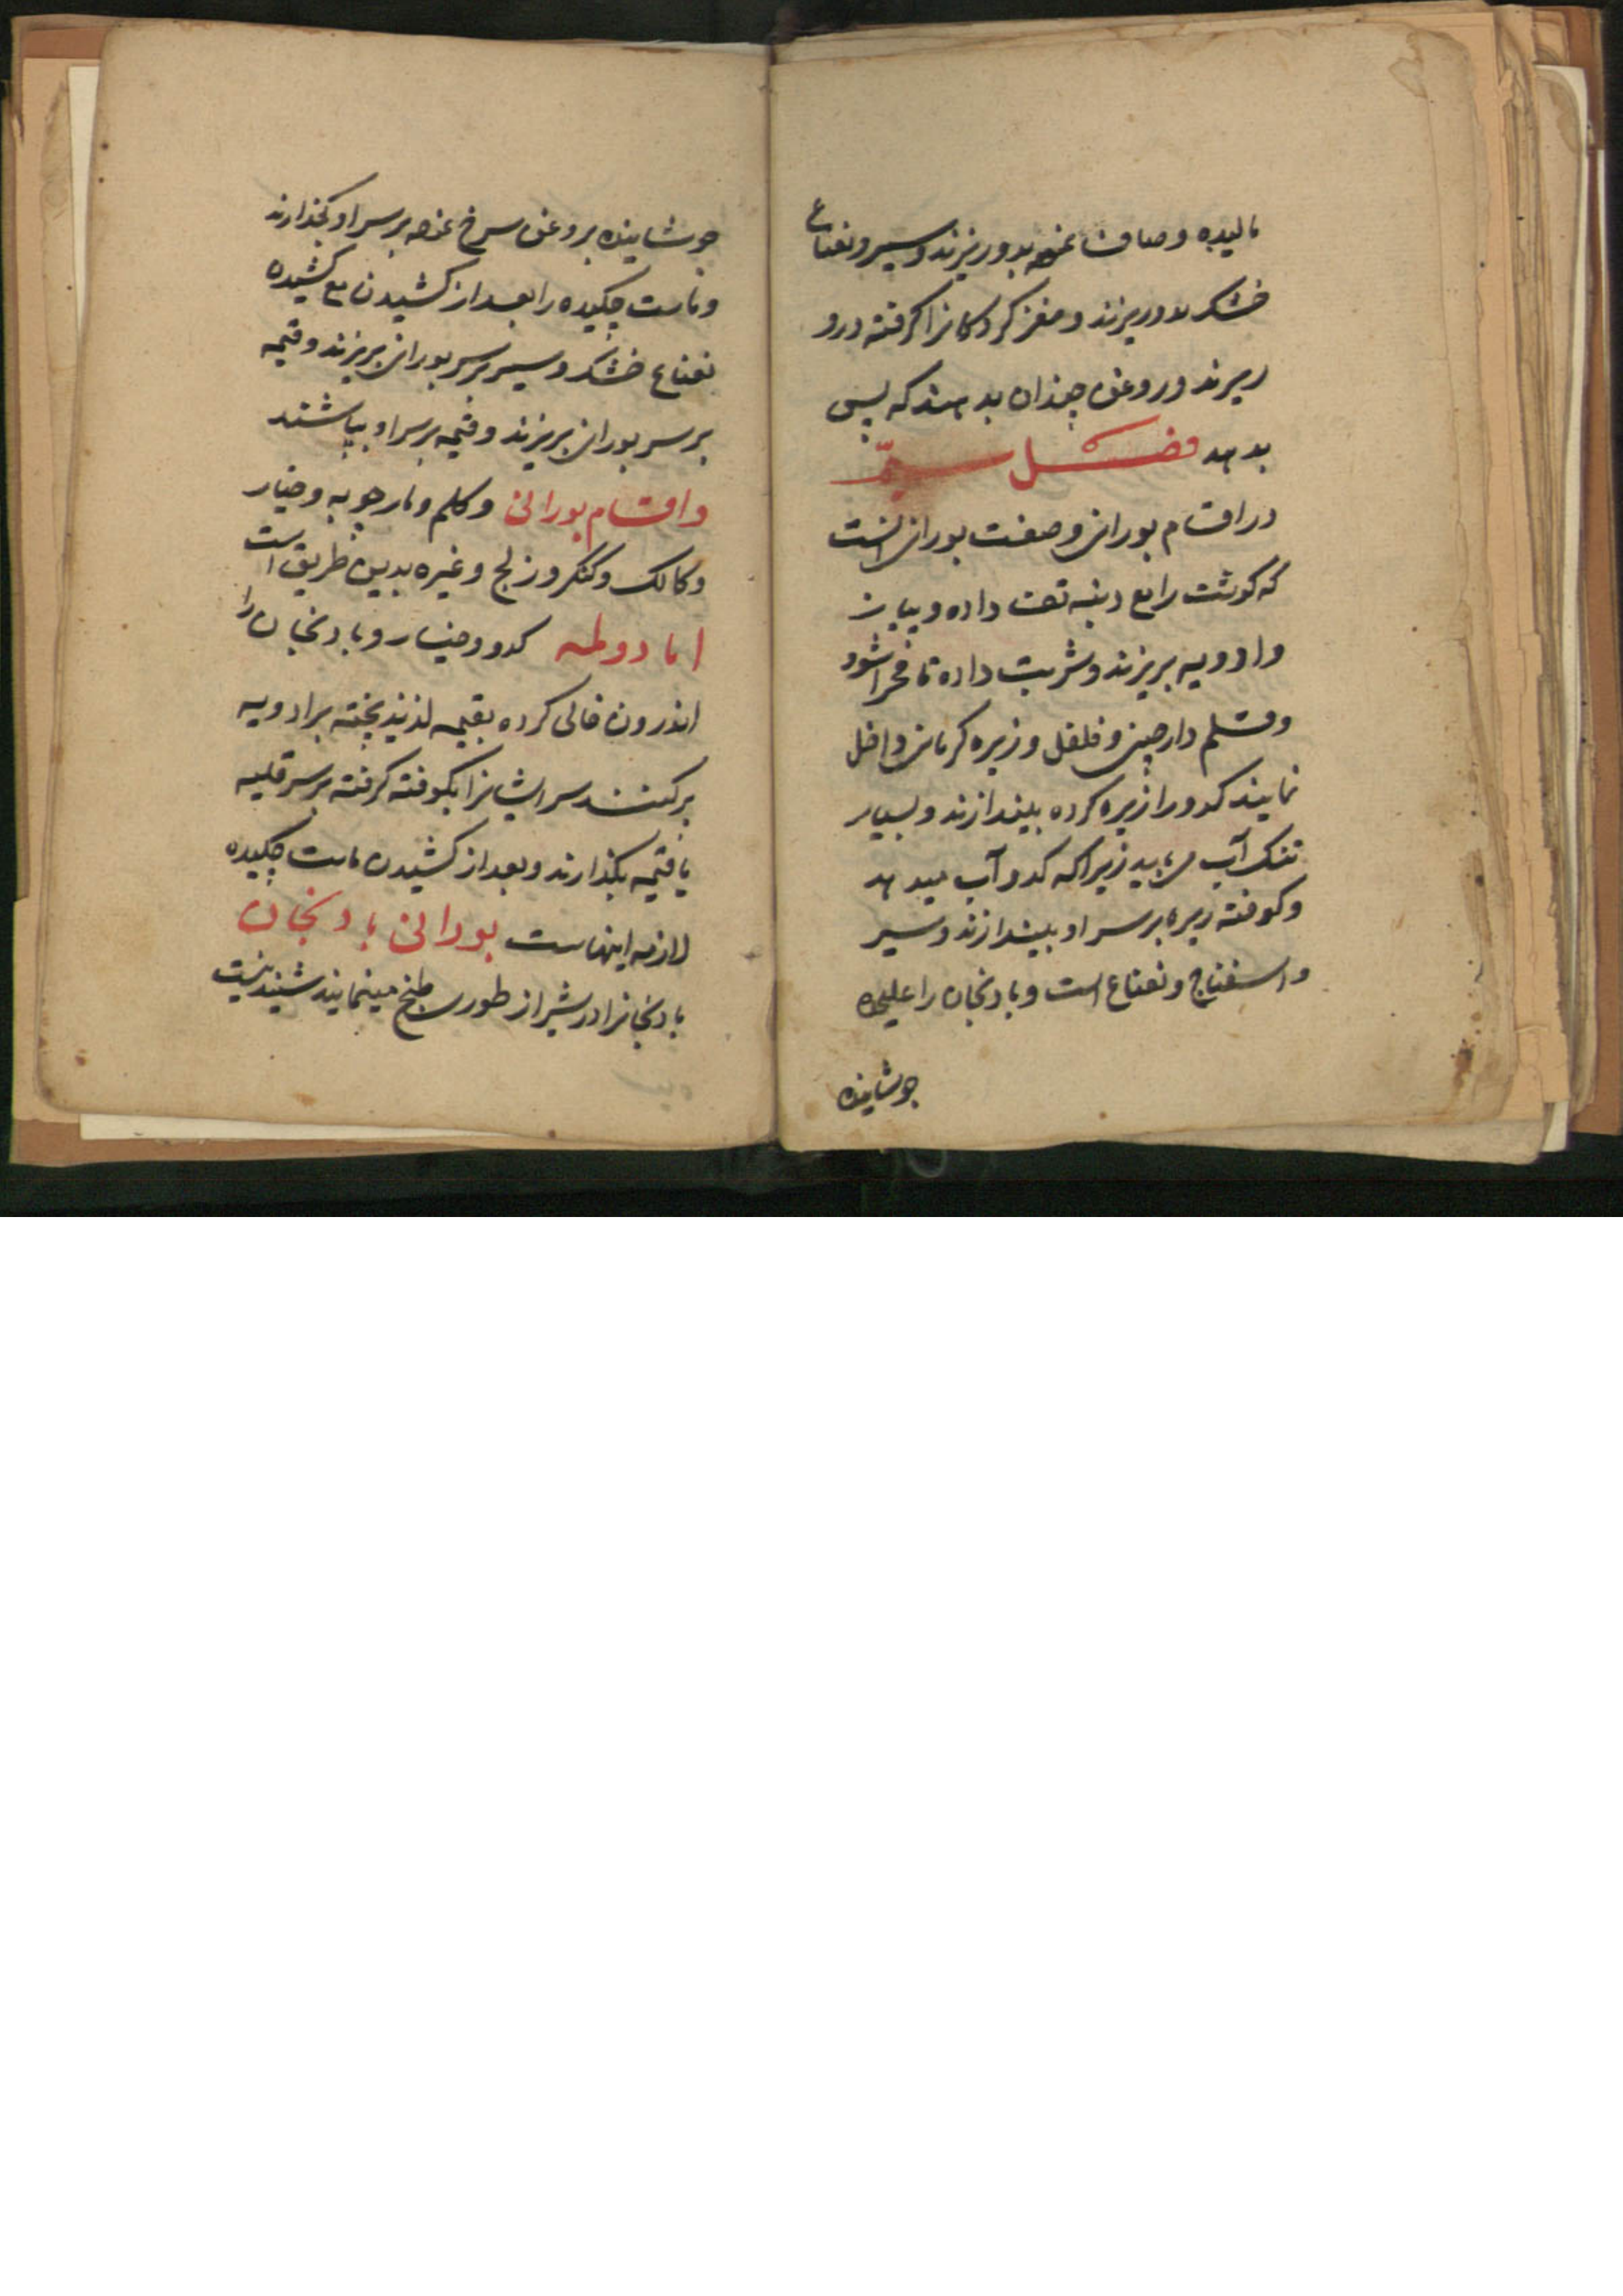 مالیده و صاف نموده بدو ریزند و سیر و نعناع
خشک بدو ریزند و مغز کردکانرا کرفته درو
ریزند و روغن چندان بدهند که پس
بدهد فصل سیم
در اقسام بورانی و صفت بورانی انست
که کوشت را مع دنبه تفت داده و پیاز
و ادویه بریزند و شربت داده تا مخرا شود
و قلم دارچینی و فلفل و زیره کرمانی داخل
نمایند کدو را زیره کرده بیندازند و بسیار
تنک آب می باید زیرا که کدو آب میدهد
و کوفته ریزه بر سر او بیندازند و سیر
و اسفناج و نعناع است و بادنجان را علیحده
جوشانیده
جوشانیده بروغن سرخ نموده بر سر او بکذارند
و ماست چکیده را بعد از کشیدن مع کشیده
نعناع خشک و سیر بر سر بورانی بریزند و قیمه
بر سر بورانی بریزند و قیمه بر سر او بپاشند
و اقسام بورانی و کلم و مارچوبه و خیار
و کالک و کنکر و زلج و غیره بدین طریق است
اما دولمه کدو و خیار و بادنجان را
اندرون خالی کرده بقیمه لذیذ پخته پر ادویه
پر کنند سر ایشانرا بکوفته کرفته بر سر قلیه
یا قیمه بکذارند و بعد از کشیدن ماست چکیده
لازمه اینهاست بورانی بادنجان
بادنجانرا در شیراز طوری طبخ مینمایند شنیدنیست